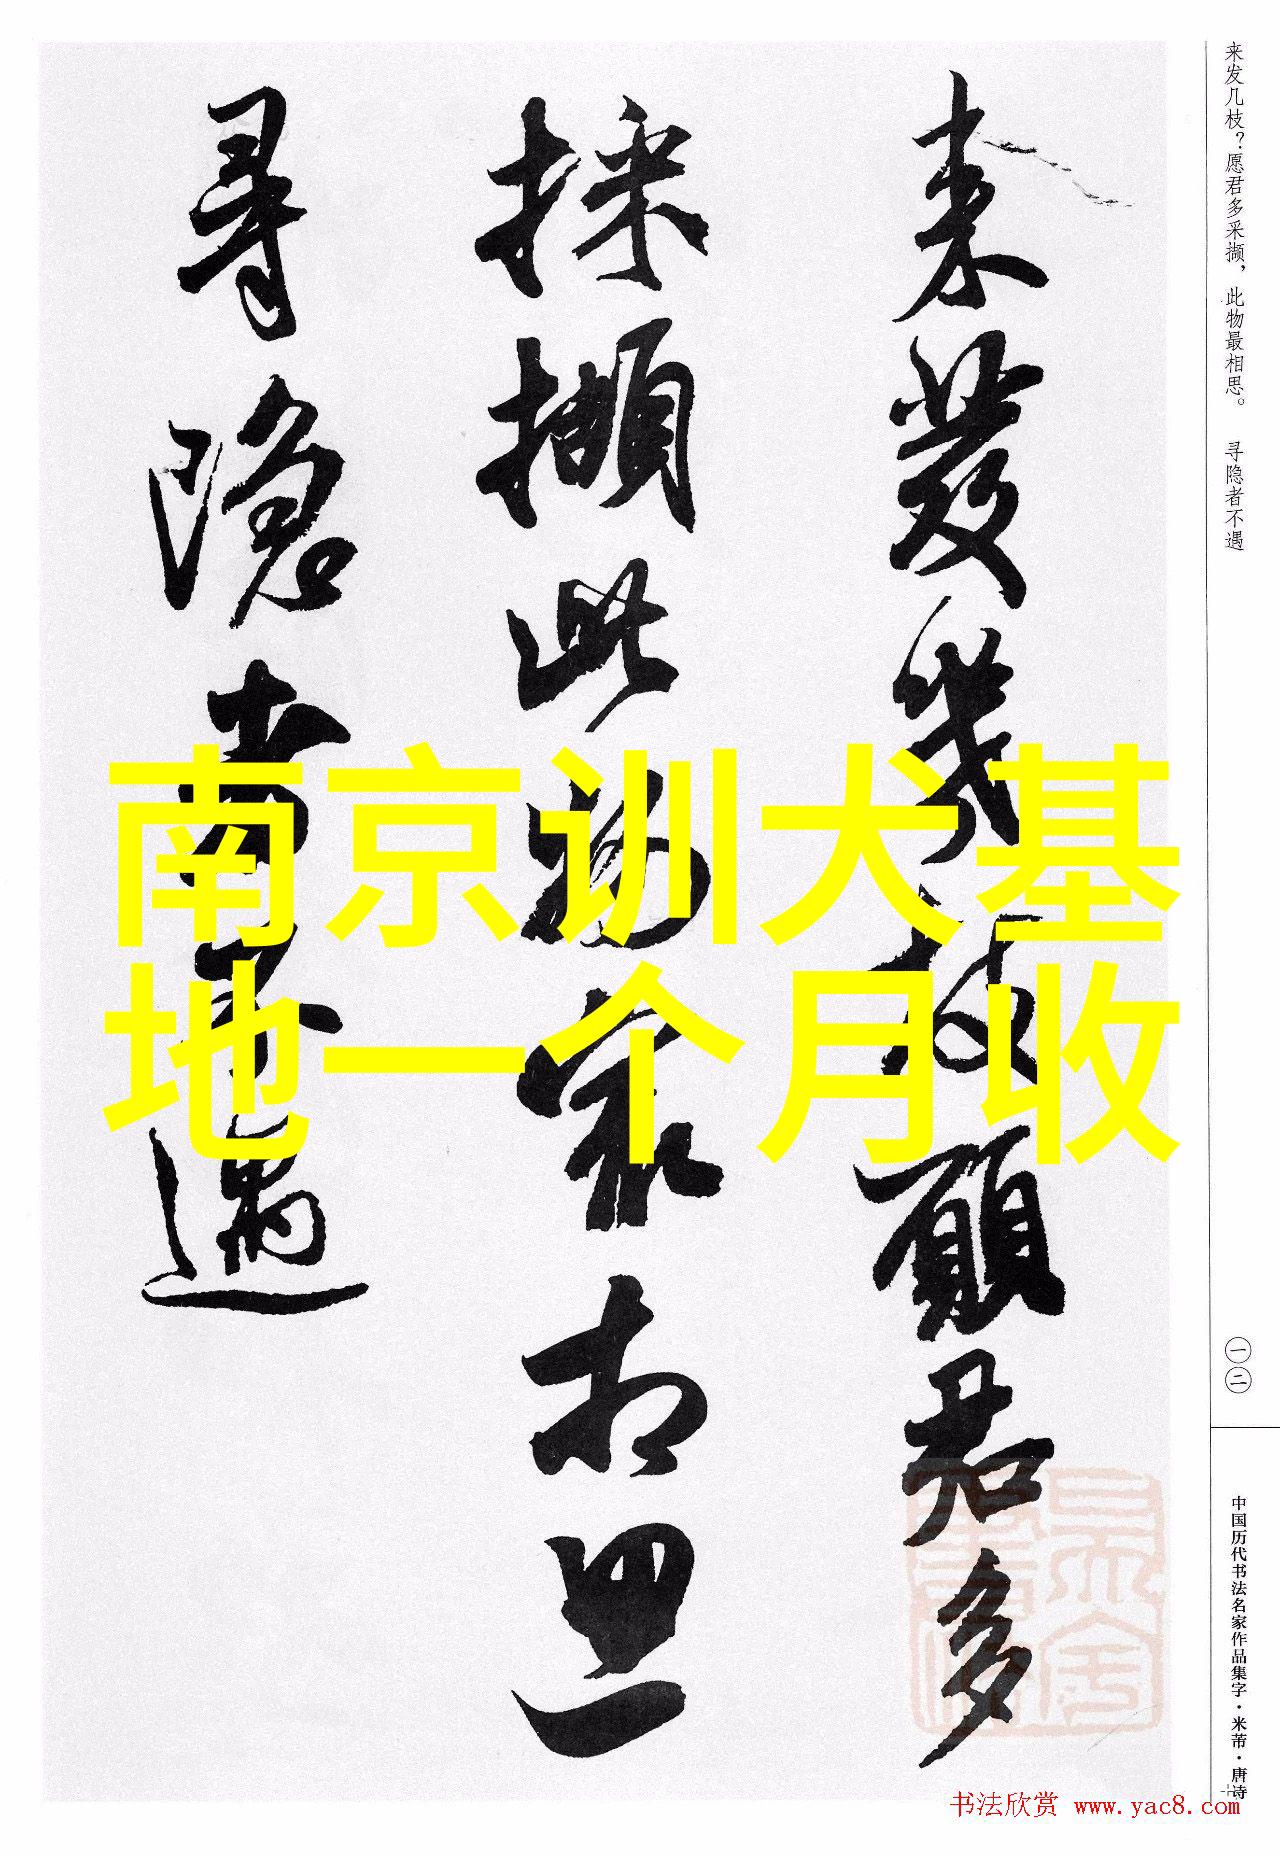 来发几枝？愿君多采撷，此物最相思。　寻隐者不遇
来發幾枝願君多
採擷此物最相思
尋隱者不遇
南京训犬基
地一个月收
一二
中国历代书法名家作品集字·米芾·唐诗
书法欣赏 www.yac8.com